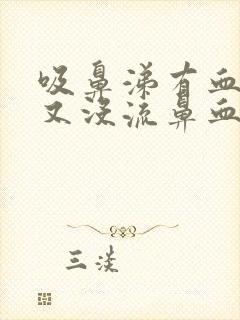 吸鼻涕有血
又没流鼻血
三淡